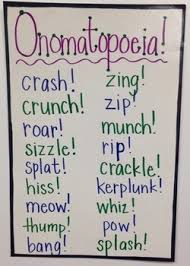 Onomatopoeia!
crash!
crunch!
roar!
sizzle!
splat!
hiss!
meow!
thump!
bang!
zing!
zip!
munch!
rip!
crackle!
kerplunk!
whiz!
pow!
splash!